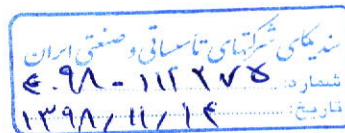 سندیکای شرکتهای تاسیساتی و صنعتی ایران
شماره: ۴۰۹۸-۱۱۲۲۷۵
تاریخ: ۱۳۹۸/۱۱/۱۴